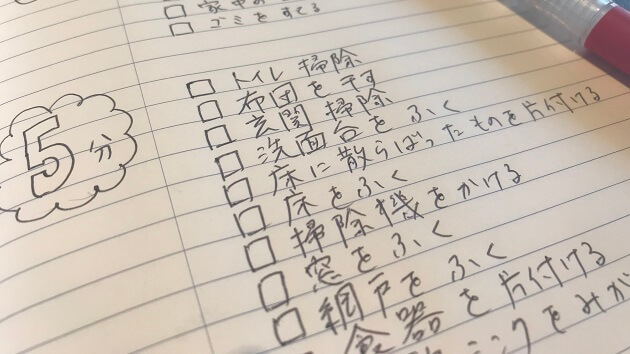 家中の
ゴミをすてる
5分
トイレ掃除
布団を干す
玄関掃除
洗面台をふく
床に散らばったものを片付ける
床をふく
掃除機をかける
窓をふく
網戸をふく
食器を片付ける
シンクをみが